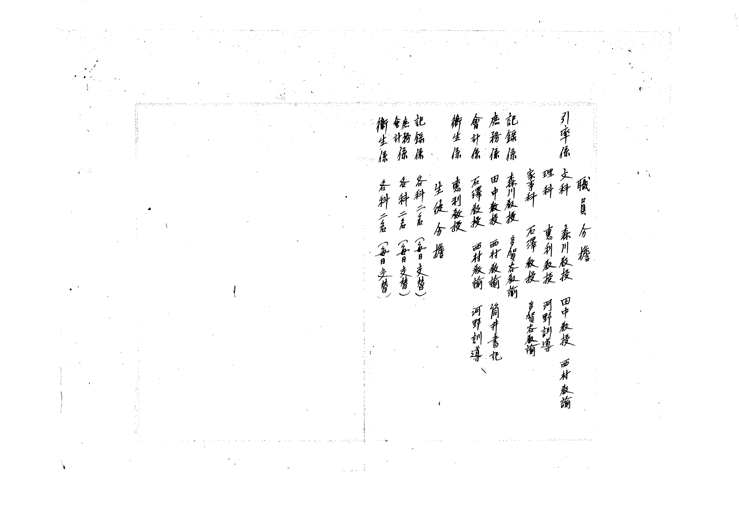 職員分擔
引率係 文科 森川教授 田中教授 西村教諭
理科 恵利教授 河野訓導
家事科 石澤教授 多賀谷教諭
記録係 森川教授 多賀谷教諭
庶務係 田中教授 西村教諭 筒井書記
會計係 石澤教授 西村教諭 河野訓導
衛生係 恵利教授
生徒分擔
記録係 各科二名(毎日交替)
庶務係會計 各科二名(毎日交替)
衛生係 各科二名(毎日交替)